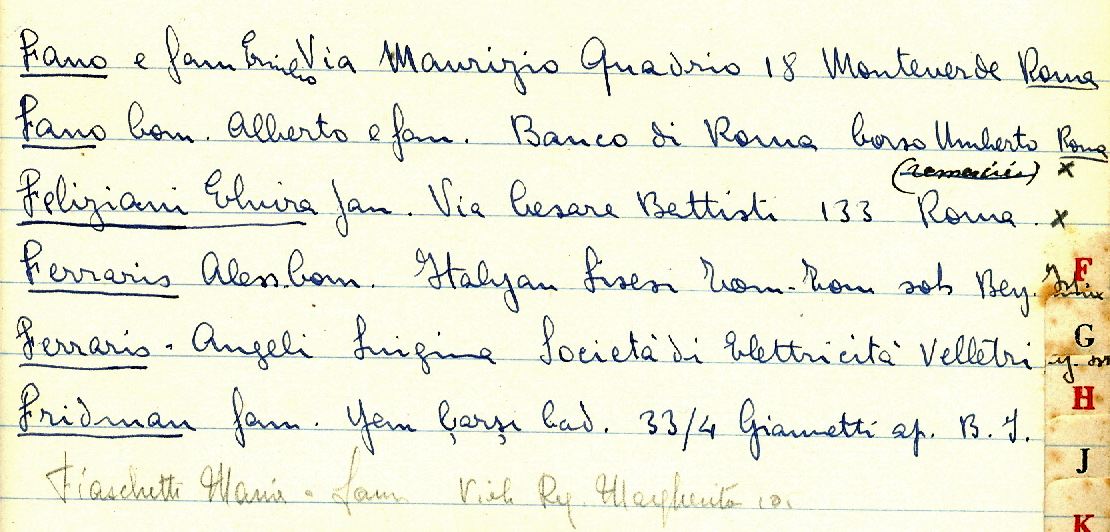 Fano e fam Emilio Via Maurizio Quadrio 18 Monteverde Roma
Fano Com. Alberto e fam. Banco di Roma Corso Umberto Roma
x
Feliziani Elvira fam. Via Cesare Battisti 133 Roma. x
Ferraris Aless. Com. Italyan Lisesi Tom-Tom sok Bey.
Ferraris - Angeli Luigina Società di Elettricità Velletri
Fridman fam. Yeni Çarşı Cad. 33/4 Giametti ap. B. I.
Fiaschetti Maria - fam Viale Reg. Margherita 101
F
G
H
J
K